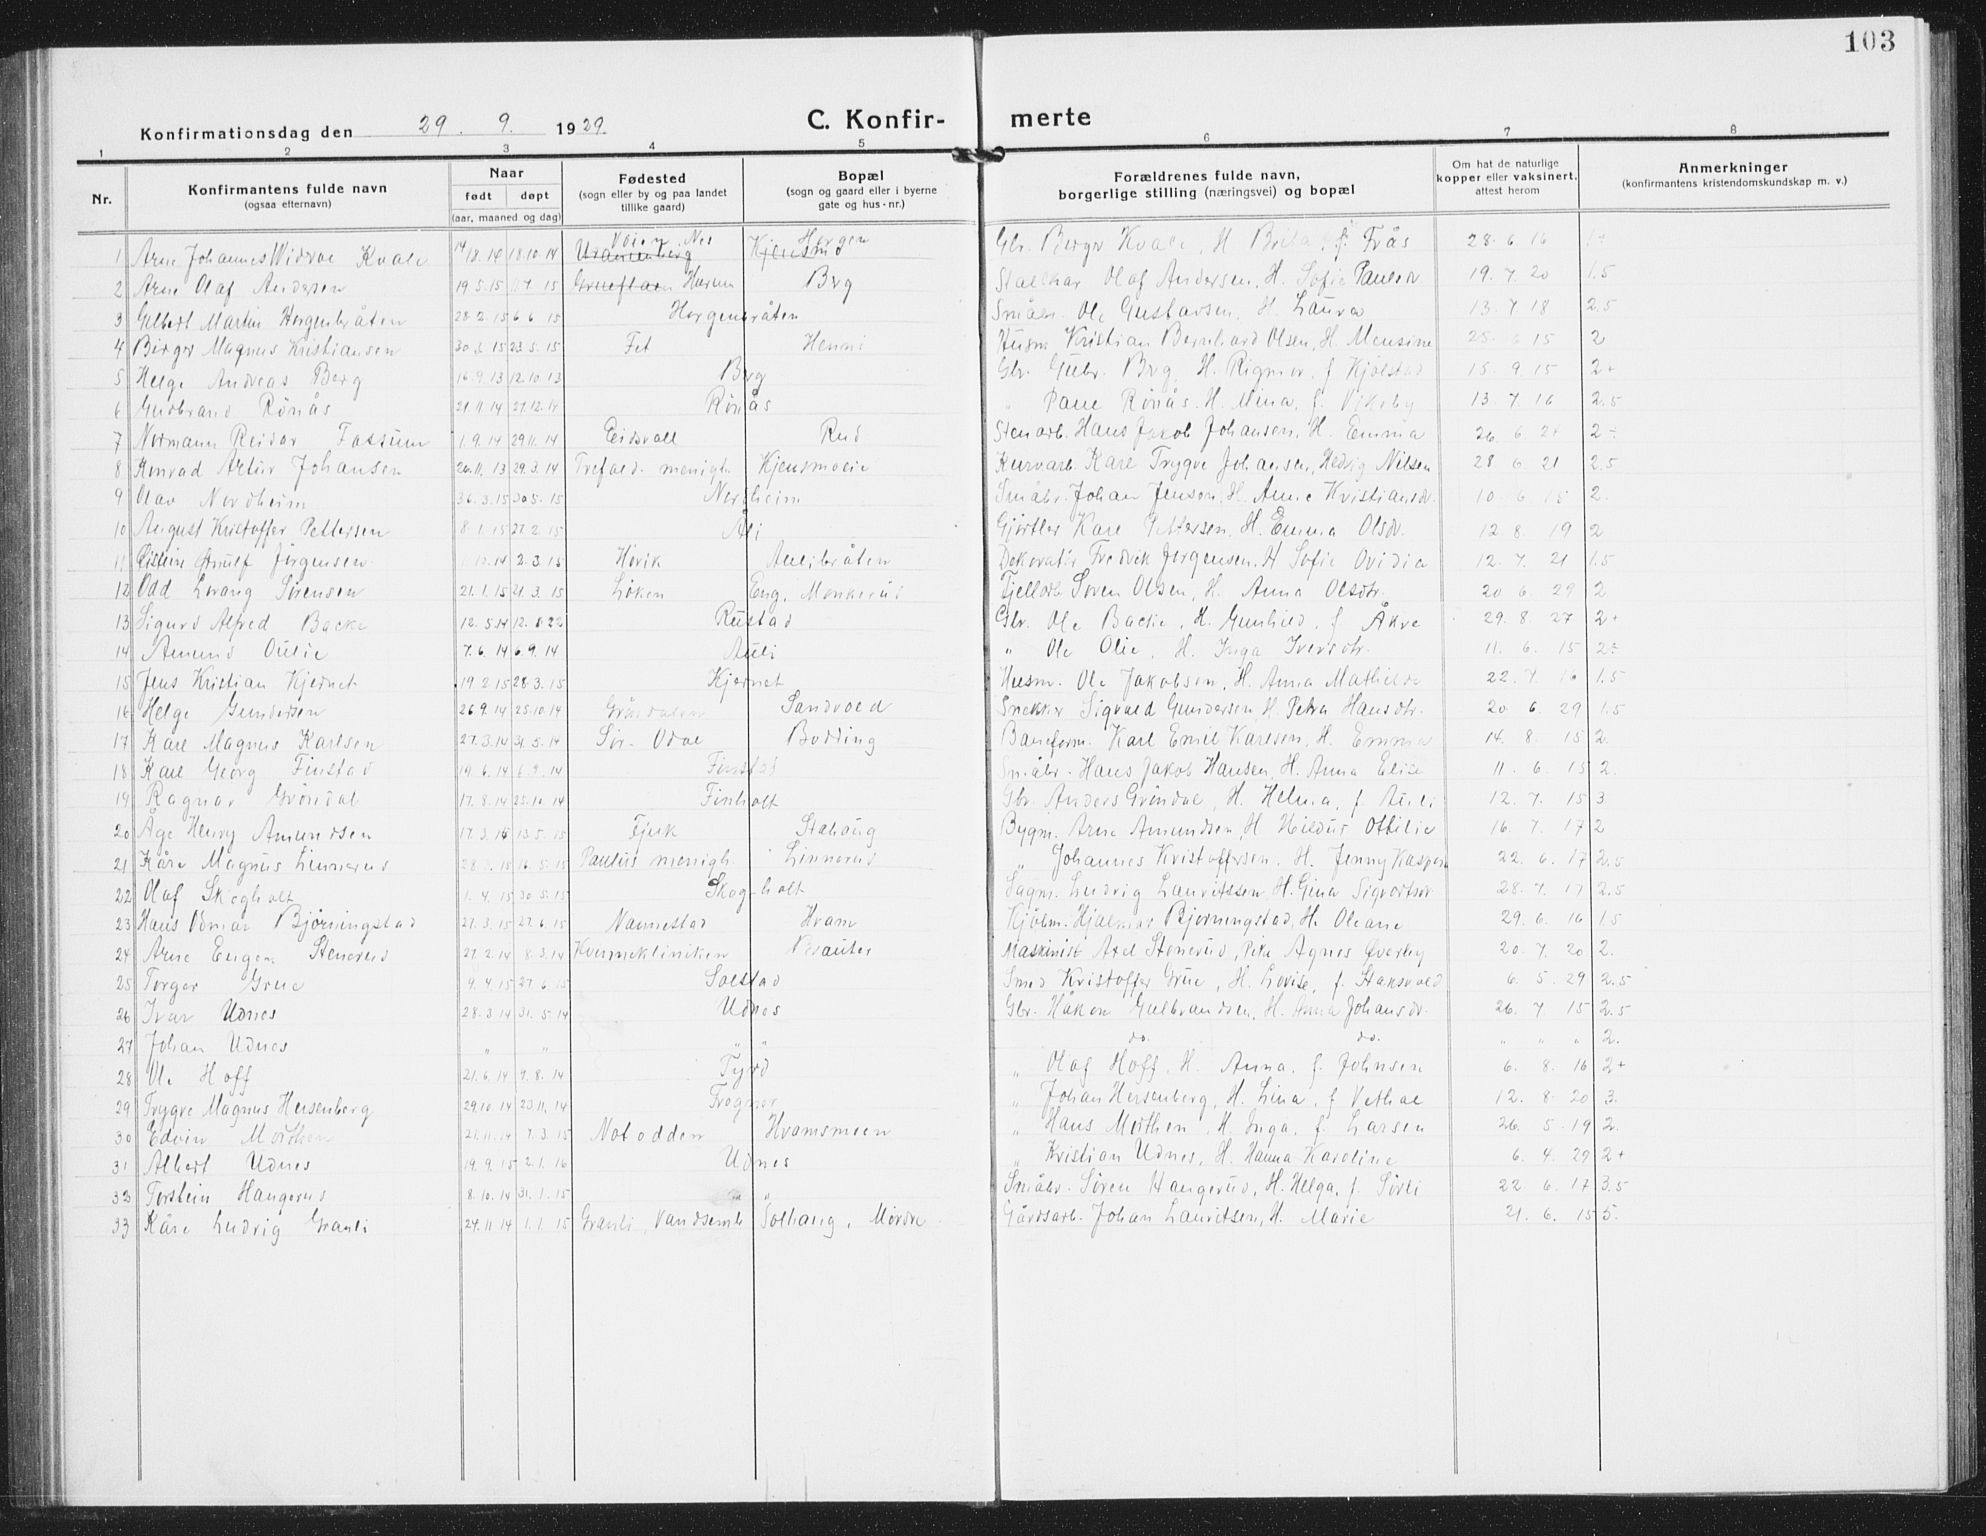 103
Konfirmationsdag den 29. 9. 1929
C. Konfir-
merte
1 2 3 4 5 6 7 8
Nr.
Konfirmantens fulde navn
(ogsaa efternavn)
Naar
født døpt
(aar, maaned og dag)
Fødested
(sogn eller by og paa landet
tillike gaard)
Bopæl
(sogn og gaard eller i byerne
gate og hus-nr.)
Forældrenes fulde navn,
borgerlige stilling (næringsvei) og bopæl
Om hat de naturlige
kopper eller vaksinert,
attest herom
Anmerkninger
(konfirmantens kristendomskundskap m. v.)
1 Arne Johannes Kvale 18.10.14 Nes Horgen Gbr. Birger Kvale, H. f. Frås 28. 6 16
2 Arne Olaf Andersen 19.5.15 Berg Olaf Andersen, H. Sofie 19. 7. 20 1.5
3 Martin Horgenbråten 28.2.15 6.6.15 Horgenbråten Småbr. Ole Gustavsen, H. Laura 13. 7 18 2.5
4 Birger Magnus Kristiansen 30.3.15 23.5.15 Fet Henni Husm. Kristian Bernhard Olsen, H. Mensine 15 2
5 Helge Andreas Berg 16.9.13 12.10.13 Berg Gbr. Gubr. Berg, H. Rigmor, f. Kjølstad 15. 9. 15 2+
6 Gudbrand Rønås 21.11.14 27.12.14 Rønås " Rønås, H. Mina, f. 13. 7. 16 2.5
7 Normann Reidar Fossum 1.9.14 29.11.14 Eidsvoll Rud Stenarb. Hans Jakob Johansen, H. Emma 26. 6.
8 Konrad Artur Johansen 26.11.13 29.3.14 Trefold. menigh. Kjensmoeie Kurvarb. Karl Trygve Johansen, Hedvig Nilsen 28 6. 21 2.5
9 Olav Nordheim Nordheim Småbr. Johan Jenson, H. Anne Kristiansdr. 10. 6 2.
10 August Kristoffer Pettersen 8.1.15 27.2.15 Åli Gjørtler Karl Pettersen, H. Emma Olsdr. 12. 8. 19 2
11 Jørgensen 2.3.15 Høvik Aulibråten Dekoratør Fredrik Jørgensen, H. Sofie Ovidia 12. 7. 21 1.5
12 Odd Lorang Sørensen 21.1.15 21.3.15 Løken Eng, Monkerud Fjellarb. Søren Olsen, H. Anna Olsdtr. 20 6. 29 2
13 Sigurd Alfred Bakke 12.5.14 Rustad Gbr. Ole Bakke, H. Gunhild, f. Åkre 29. 8. 27 2+
14 Amund Oulie 7.6.14 6.9.14 Auli " Ole Olie, H. Inga Iversdtr. 11. 6. 15
15 Jens Kristian Kjernet 19.2.15 28.3.15 Kjernet Husm. Ole Jakobsen, H. Anna Mathilde 22. 7. 16 1.5
16 Helge Gundersen 26.9.14 25.10.14 Grøndalen Sandvold Snekker Sigvald Gundersen, H. Petra Hansdtr. 20 6. 29 1.5
17 Karl Magnus Karlsen 27.3.14 31.5.14 Sør-Odal Bodding Baneform. Karl Emil Karlsen, H. Emma 14. 8. 15 2.
18 Karl Georg Finstad 19.6.14 6.9.14 Finstad Småbr. Hans Jakob Hansen, H. Anna Elise 11. 6. 15 2.
19 Ragnar Grøndal 17.8.14 25.10.14 Finholt Gbr. Anders Grøndal, H. Helma, f. Auli 12. 7. 15 3
20 Åge Henry Amundsen 17.3.15 13.5.15 Fjuk Stahaug Bygm. Arne Amundsen, H. Hildur Ottilie 16. 7. 17 2
21 Kåre Magnus Linnerud 16.5.15 Paulus menigh. Linnerud " Johannes Kristoffersen, H. Jenny 22. 6. 17 2.5
22 Olaf Skogholt 1.4.15 30.5.15 Skogholt Sagm. Ludvig Lauritssen, H. Gina 28. 7. 17 2.5
23 Hans Odmar Bjørningstad 21.3.15 27.6.15 Nannestad Hvam Hjalmar Bjørningstad, H. Oleane 29. 6. 16 1.5
24 Arne Eugen Stenerud 27.2.14 8.3.14 Kvinneklinikken Brauter Maskinist Axel Stenerud, Pike Agnes Øverby 20. 7. 20 2.
25 Torger Grue 9.4.15 27.6.15 Solstad Smed Kristoffer Grue, H. Lovise, f. Stensvold 6. 5. 29 2.5
26 Ivar Udnes 28.3.14 31.5.14 Udnes Gbr. Håkon Gulbrandsen, H. Anna Johansdr. 26. 7 15 2.5
27 Johan Udnes " " " " do. do. " " " 2.
28 Ole Hoff 21.6.14 9.8.14 " Olaf Hoff, H. Anna, f. Johnsen 6. 8. 16 2+
29 Trygve Magnus Hersenberg 29.10.14 23.11.14 Frogner " Johan Hersenberg, H. Lina, f. Vethal 12. 8. 20 3.
30 Edvin Morthen 21.11.14 7.3.15 Notodden Hvamsmoen " Hans Morthen, H. Inga, f. Larsen 26. 5. 19 2.
31 Albert Udnes 19.9.15 2.1.16 Udnes " Kristian Udnes, H. Hanna Karoline 6. 4. 29 2+
32 Torstein Hangerud 8.10.14 31.1.15 " " Småbr. Søren Hangerud, H. Helga, f. Sørli 22. 6. 17 3.5
33 Kåre Ludvig Granli 24.11.14 1.1.15 Granli, Vandsemb Solhaug, Mordre Gårdsarb. Johan Lauritsen, H. Marie 21. 6. 15 5.